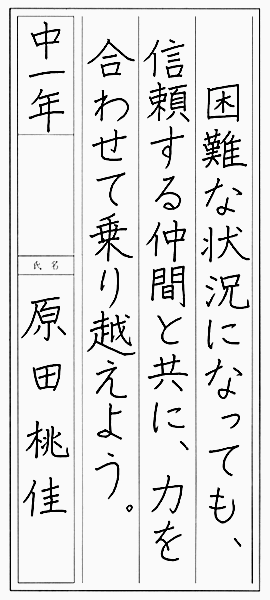 困難な状況になっても、
信頼する仲間と共に、力を
合わせて乗り越えよう。
中一年
氏名
原田桃佳